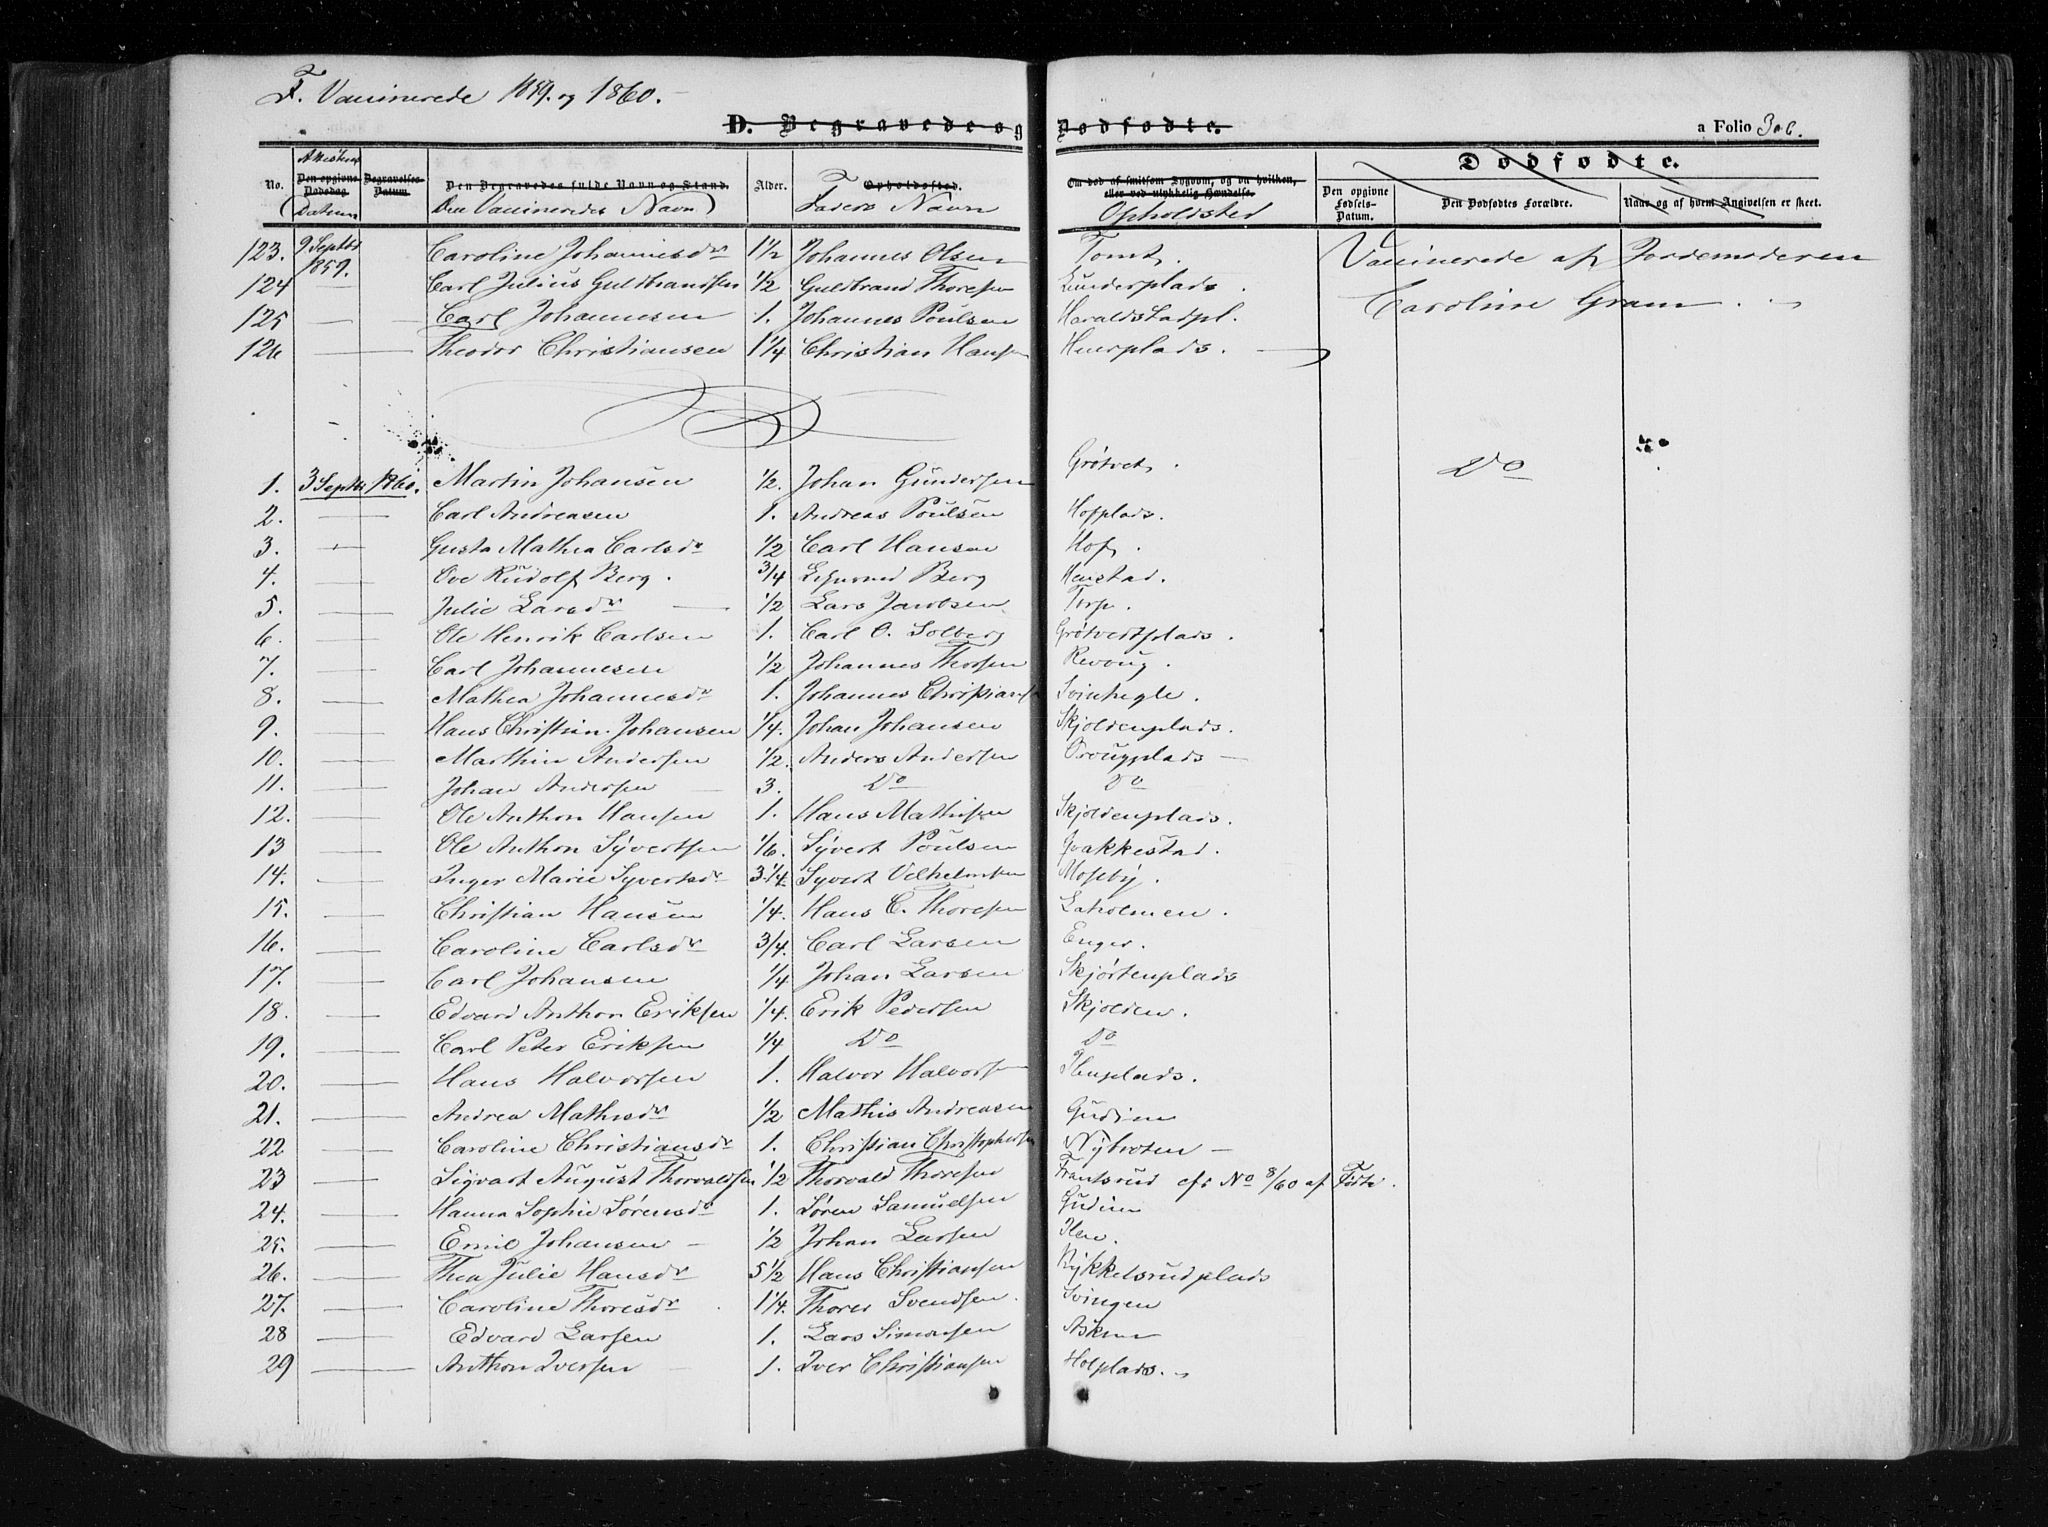 F. Vaccinerede 1859. og 1860.
D. Begravede og Dødfødte. a Folio 306.
Attestens
Dødfødte.
No. Den opgivne Dødsdag Begravelses-Datum. Den Begravedes fulde Navn og Stand. Alder. Opholdssted. Om død af smitsom Sygdom, og da hvilken, eller ved ulykkelig Hændelse. Den opgivne Fødsels-Datum. Den Dødfødtes Forældre. Naar og af hvem Angivelsen er skeet.
(Datum Den Vaccineredes Navn) Faders Navn Opholdsted
123. 9 Septbr 1859. Caroline Johannesdr 1 1/2 Johannes Olsen Tomt. Vaccinerede af Jordemoderen
124 — Carl Julius Guldbrandsen 1/2 Guldbrand Thoresen Lunderplads. Caroline Gram.
125 — — Carl Johannesen 1. Johannes Poulsen Haraldstadpl.
126 — — Theodor Christiansen 1 1/4 Christian Hansen Huerplads. —
1. 3 Septbr 1860. Martin Johansen 1/2. Johan Gundersen Grøtvet. Do
2. — Carl Andreasen 1. Andreas Poulsen Hofplads.
3. — Gusta Mathea Carlsdr 1/2 Carl Hansen Hof.
4. — Ove Rudolf Berg. 3/4 Berg
5. — Julie Larsdr — 1/2 Lars Jacobsen Torp.
6. — Ole Henrik Carlsen 1. Carl O. Solberg Grøtvedtplads.
7. — — Carl Johannesen 1/2 Johannes Thorsen Revoug.
8. — — Mathea Johannesdr 1. Johannes Christiansen Svinhegle.
9. — — Hans Christian Johansen 1/4. Johan Johansen Skjoldenplads.
10. — — Marthin Andersen 1/2. Anders Andersen Ovougplads —
11. — — Johan Andersen — 3. Do Do
12. — — Ole Anthon Hansen 1. Hans Mathisen Skjoldenplads.
13 — — Ole Anthon Syvertsen 1/6. Syvert Poulsen Ivakkestad.
14. — — Inger Marie Syvertsdr 3 1/4. Syvert Vilhelmsen Moseby.
15. — — Christian Hansen 1/4. Hans C. Thoresen Laholmen.
16. — — Caroline Carlsdr 3/4. Carl Larsen Enger.
17. — — Carl Johansen 1/4 Johan Larsen Skjørtenplads
18. — — Edvard Anthon Eriksen 1/4. Erik Pedersen Skjolden.
19. — — Carl Peter Eriksen 1/4 Do Do
20. — — Hans Halvorsen 1. Halvor Halvorsen Ihlenplads.
21. — — Andrea Mathisdr 1/2 Mathis Andreasen Gudim
22 — — Caroline Christiansdr 1. Christian Christophersen Nybroten —
23 — — Sigvart August Thorvaldsen 1/2 Thorvald Thoresen Frantsrud cfr No 8/60 af Fødte.
24. — — Hanna Sophie Sørensdr 1. Søren Samuelsen Gudim
25. — — Emil Johansen — 1/2 Johan Larsen Ilen.
26. — — Thea Julie Hansdr 5 1/2 Hans Christiansen Rykkelsrudplads
27. — — Caroline Thoresdr 1 1/4. Thores Svendsen. Svingen
28 — — Edvard Larsen 1. Lars Simonsen Askim
29 — — Anthon Iversen — 1. Iver Christiansen Holplads.